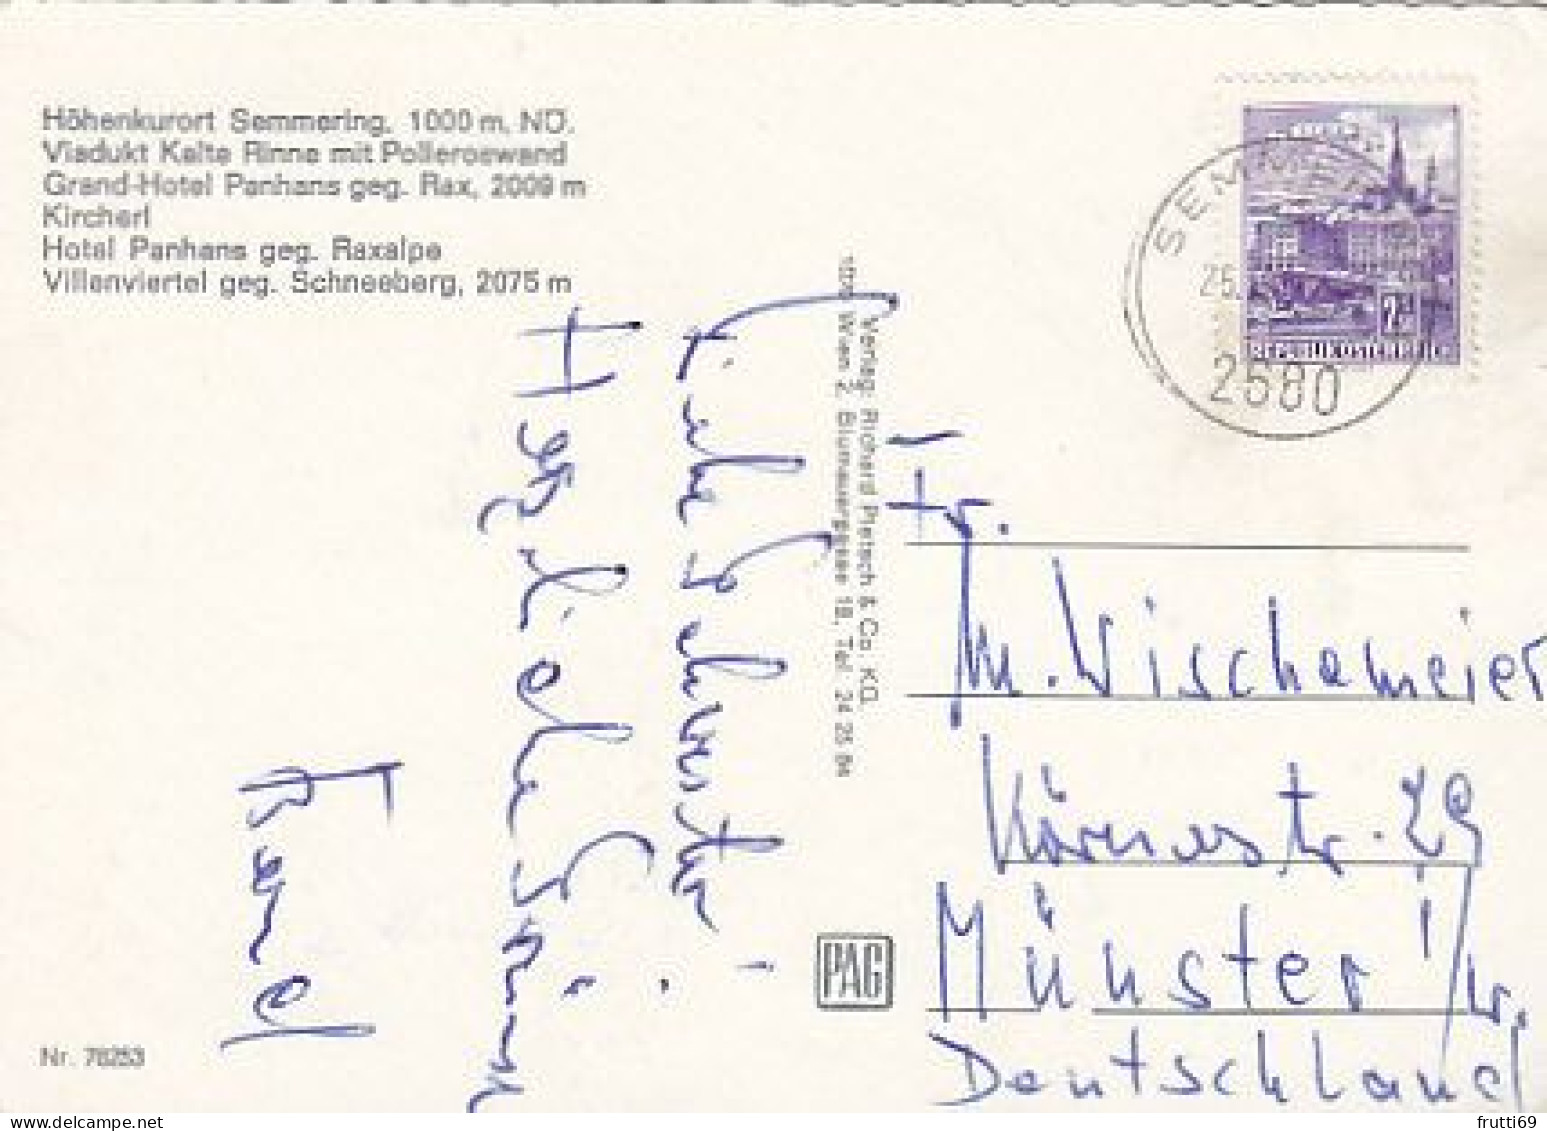 Höhenkurort Semmering, 1000 m, NÖ.
Viadukt Kalte Rinne mit Polleroswand
Grand-Hotel Panhans geg. Rax, 2009 m
Kircherl
Hotel Panhans geg. Raxalpe
Villenviertel geg. Schneeberg, 2075 m
SEMMER
25.
2680
2.-
REPUBLIK ÖSTERREICH
Verlag: Richard Pietsch & Co. KG.
1020 Wien 2, Blumauergasse 18, Tel. 24 25 94
Liebe
Herzliche Grüße
Fr.
M. Wischemeier
str. 29
Münster i/W.
Deutschland
PAG
Nr. 76253
frutti69